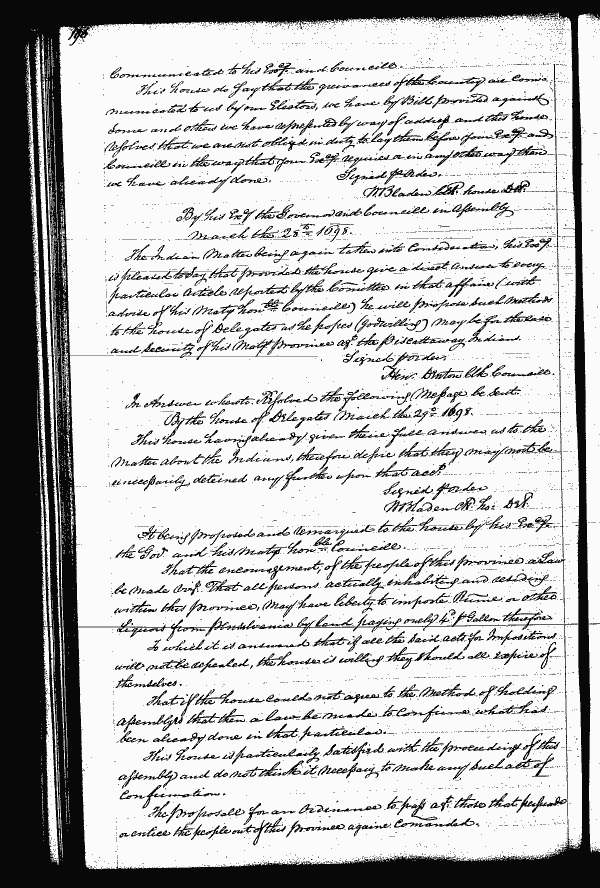 198
Communicated to his Excy. and Councill.
This house do Say that the grievances of the Country are Com=
municated to us by our Electors, we have by Bill provided against
Some and others we have represented by way of address and this house
resolves that we are not obliged in duty to lay them before your Excy. and
Councill in the way that your Excy. requires or in any other way then
we have already done.
Signed p order.
W Bladen Clk house Del.
By his Excy the Governor and Councill in Assembly
March the 28th 1698.
The Indian Matter being again taken into Consideration, his Excy.
is pleased to Say that provided the house give a direct answer to every
particular Article reported by the Comittee in that affaire (with
advise of his Matys honble Councill) he will propose such Methods
to the house of Delegates as he hopes (God willing) may be for the ease
and Security of his Matys Province agt. the Piscattaway Indians.
Signed p order.
Hen: Denton Clk Councill.
In Answer whereto Resolved the following Message be Sent.
By the house of Delegates March the 29th 1698.
This house having already given their full answer as to the
Matter about the Indians, therefore desire that they may not be
unnecessarily detained any further upon that acct.
Signed p order
W Bladen Clk ho: Del.
It being proposed and remarqued to the house by his Excy.
the Govr and his Matys honble Councill.
That the encouragemt. of the people of this Province a Law
be made Viz. That all persons actually inhabiting and residing
within this Province, May have liberty to importe Rume or other
Liquors from Pensilvania by land paying onely 4d. p Gallon therefore
To which it is answered that if all the said acts for Impositions
will not be repealed, the house is willing they should all expire of
themselves.
That if the house could not agree to the Method of holding
assemblys that then a law be made to Confirme what has
been already done in that particular.
This house is particularly Satisfied with the proceedings of this
assembly and do not think it necessary to make any such act of
Confirmation.
The Proposall for an Ordinance to pass agt. those that perswade
or entice the people out of this Province againe Comanded.